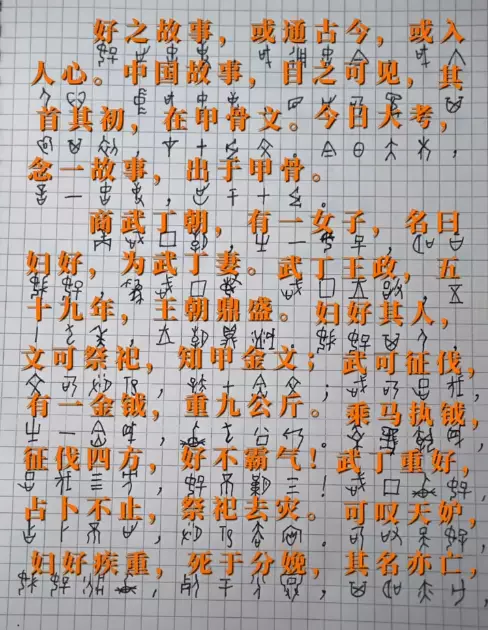 好之故事，或通古今，或入
人心。中国故事，目之可见，其
首其初，在甲骨文。今日大考，
念一故事，出于甲骨。
商武丁朝，有一女子，名曰
妇好，为武丁妻。武丁王政，五
十九年，王朝鼎盛。妇好其人，
文可祭祀，知甲金文；武可征伐，
有一金钺，重九公斤。乘马执钺，
征伐四方，好不霸气！武丁重好，
占卜不止，祭祀去灾。可叹天妒，
妇好疾重，死于分娩，其名亦亡，